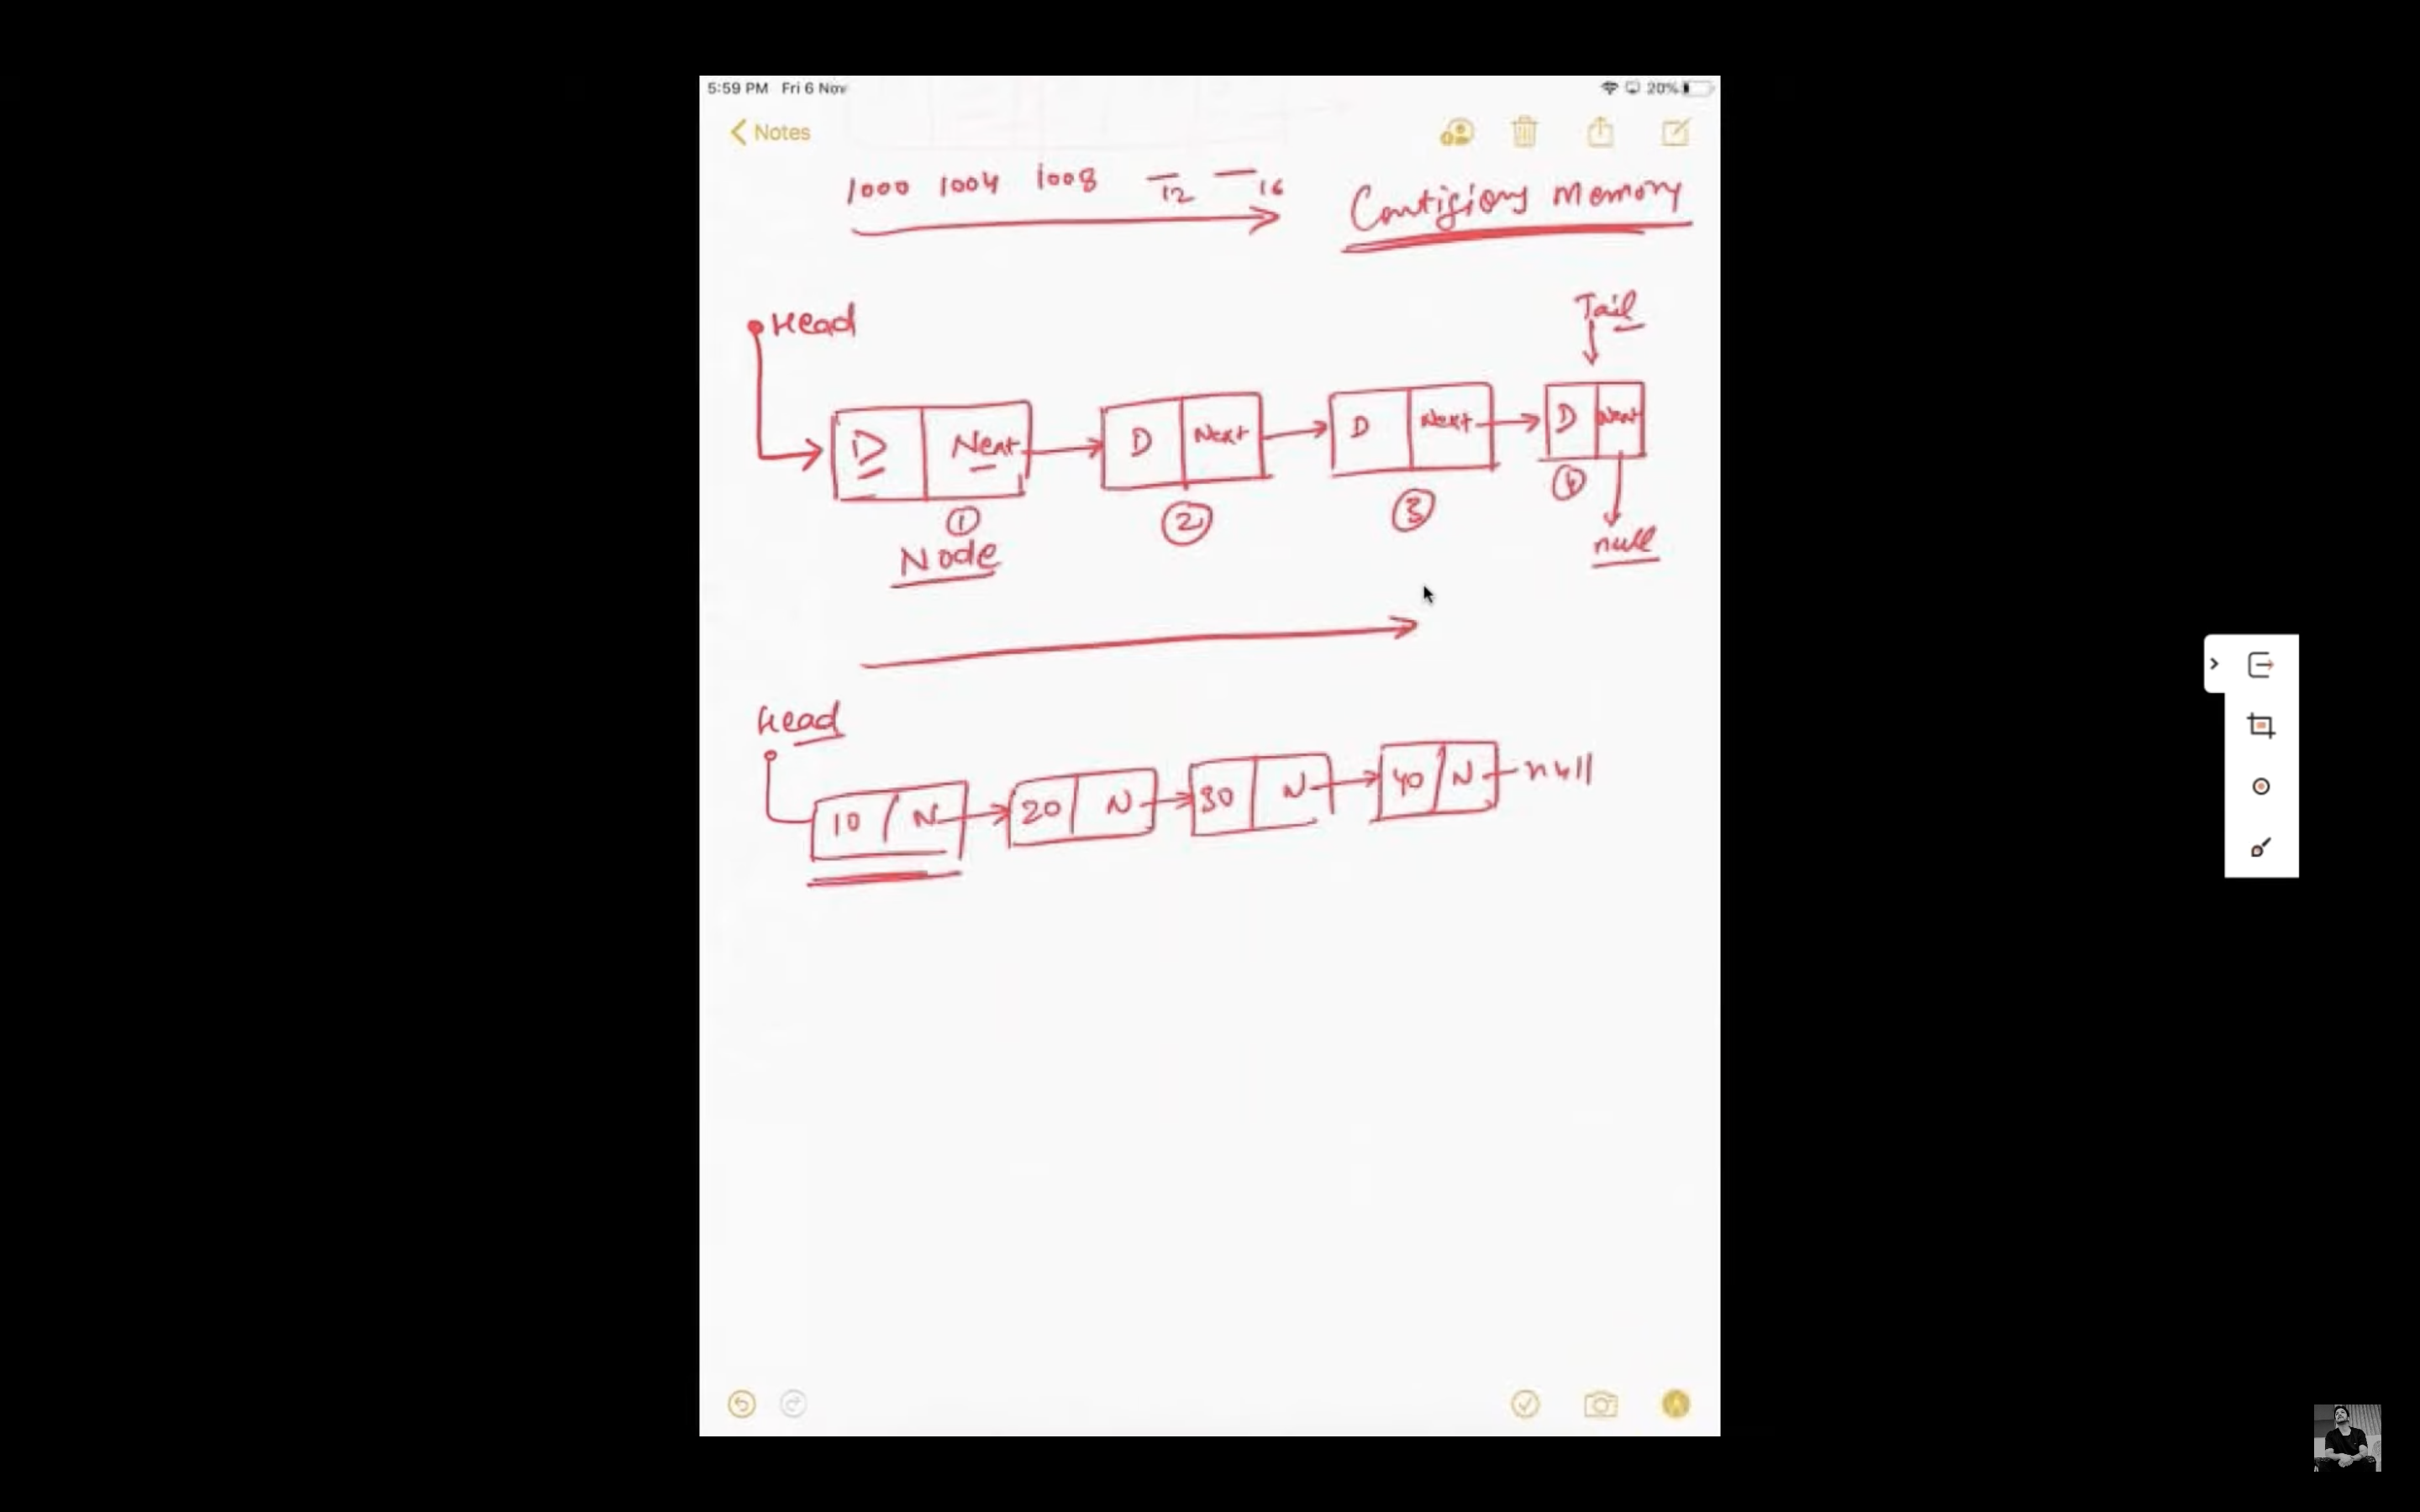 5:59 PM Fri 6 Nov 20%
Notes
1000 1004 1008 12 16
Contigions Memory
Head
Tail
D Next D Next D Next D Next
1 2 3 4
Node
null
Head
10 N 20 N 30 N 40 N null